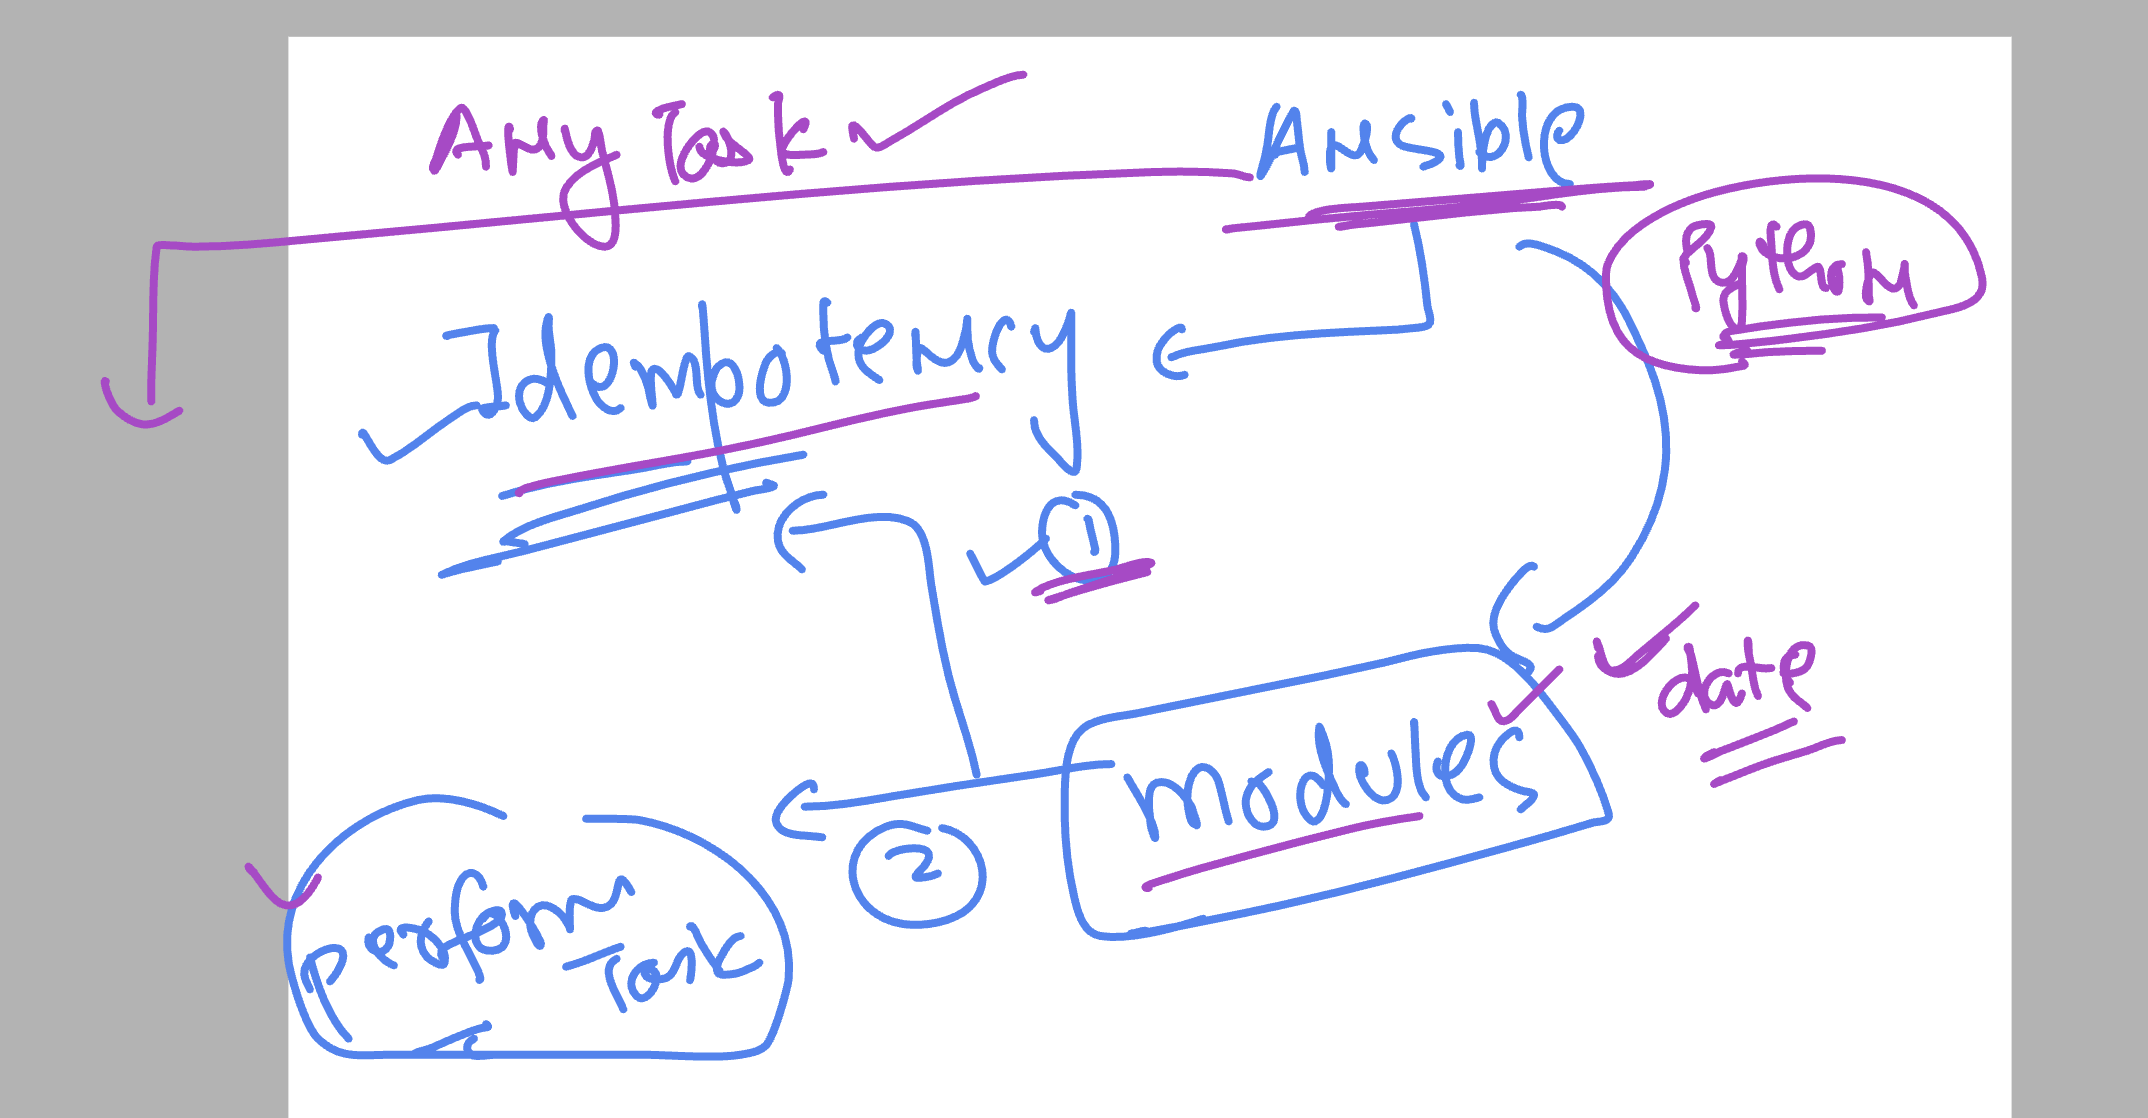 Any Task
Ansible
Python
Idempotency
1
date
Modules
2
Perform
Task